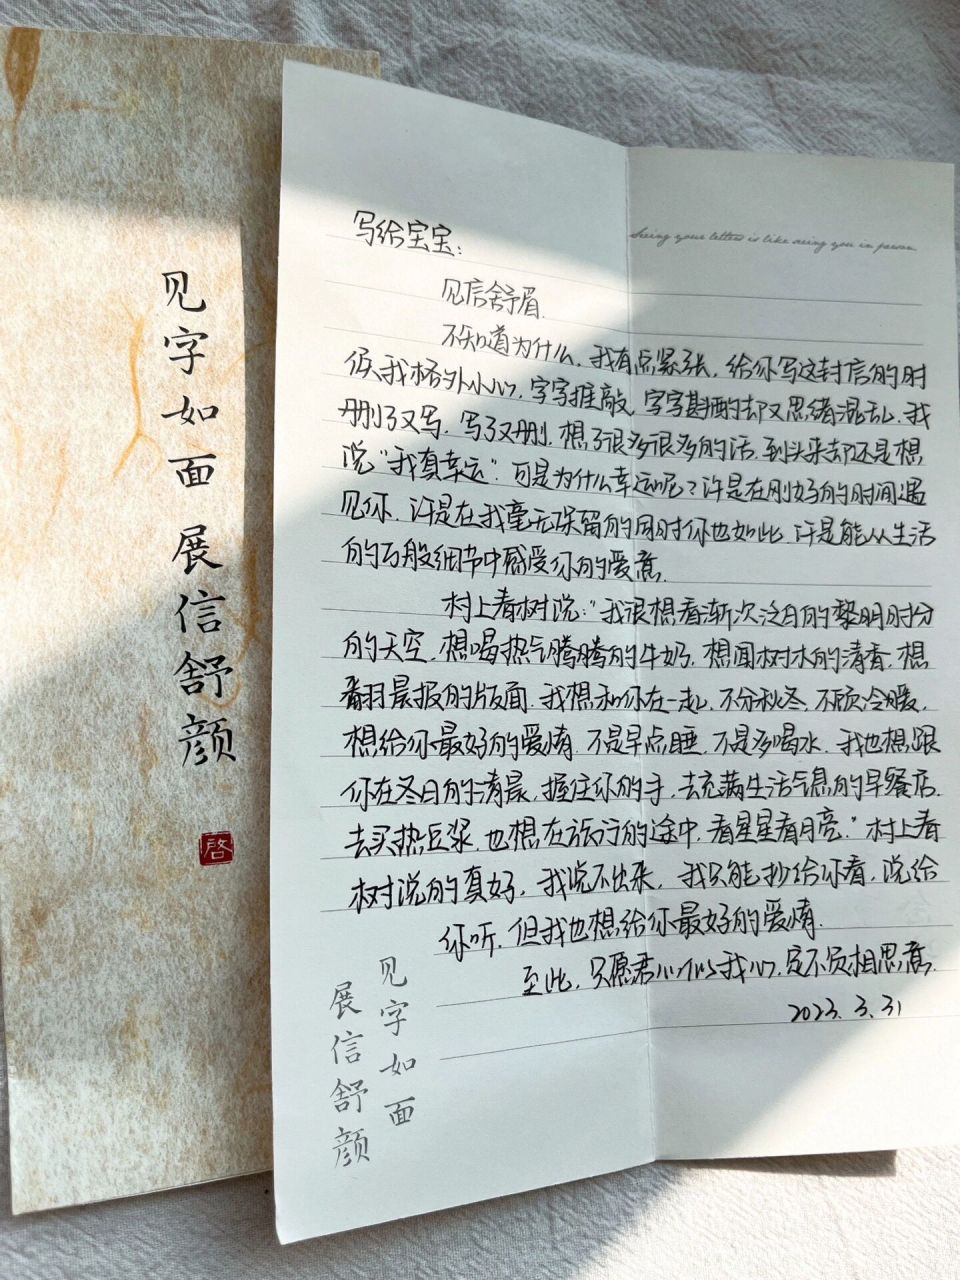 见字如面 展信舒颜
启
Seeing your letter is like seeing you in person
写给宝宝：
见信舒眉.
不知道为什么，我有点紧张，给你写这封信的时
候我格外小心，字字推敲，字字斟酌的却又思绪混乱，我
删了又写，写了又删，想了很多很多的话，到头来却还是想
说“我真幸运”.可是为什么幸运呢？许是在刚好的时间遇
见你，许是在我毫无保留的同时你也如此，许是能从生活
的万般细节中感受你的爱意.
村上春树说：“我很想看渐次泛白的黎明时分
的天空，想喝热气腾腾的牛奶，想闻树木的清香，想
翻晨报的版面，我想和你在一起，不分秋冬，不顾冷暖，
想给你最好的爱情，不是早点睡，不是多喝水，我也想跟
你在冬日的清晨，握住你的手，去充满生活气息的早餐店，
去买热豆浆，也想在旅行的途中，看星星看月亮.”村上春
树说的真好，我说不出来，我只能抄给你看，说给
你听，但我也想给你最好的爱情.
至此，只愿君心似我心，定不负相思意.
2023.3.31
见字如面
展信舒颜